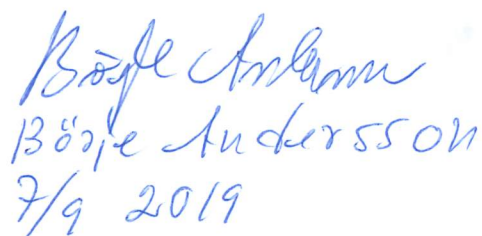 Börje Andersson
Börje Andersson
7/9 2019